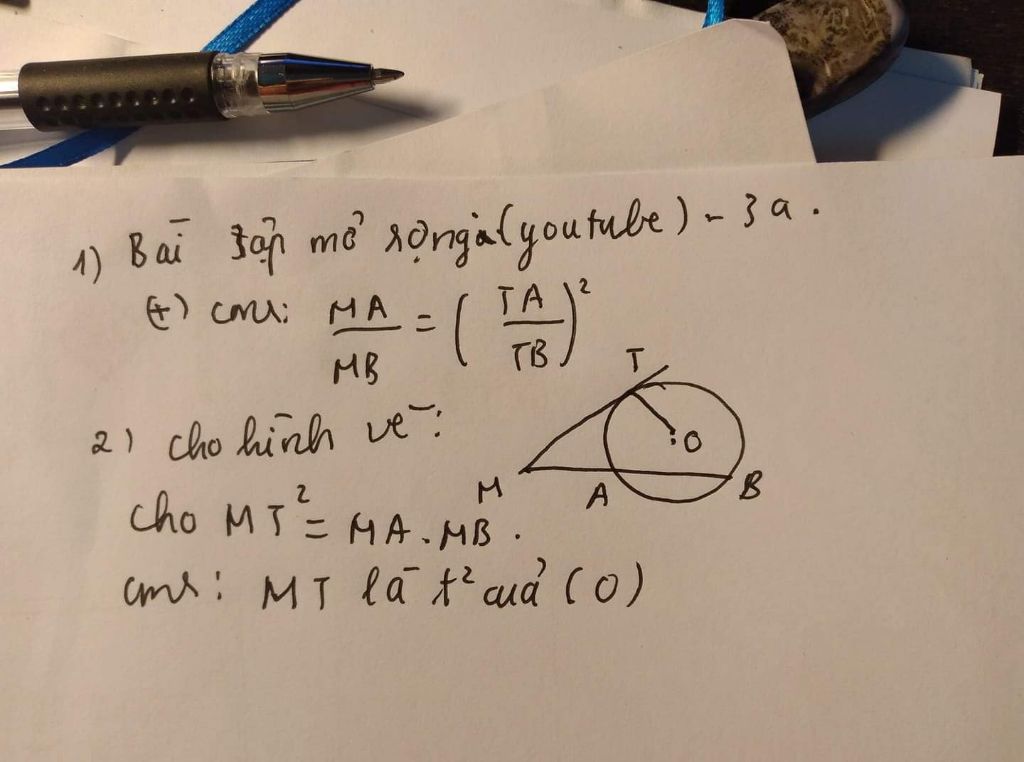 1) Bài tập mở rộng (youtube) - 3a.
(+) cmr: MA/MB = (TA/TB)²
2) cho hình vẽ:
T
O
M A B
cho MT² = MA.MB.
cmr: MT là t² của (O)